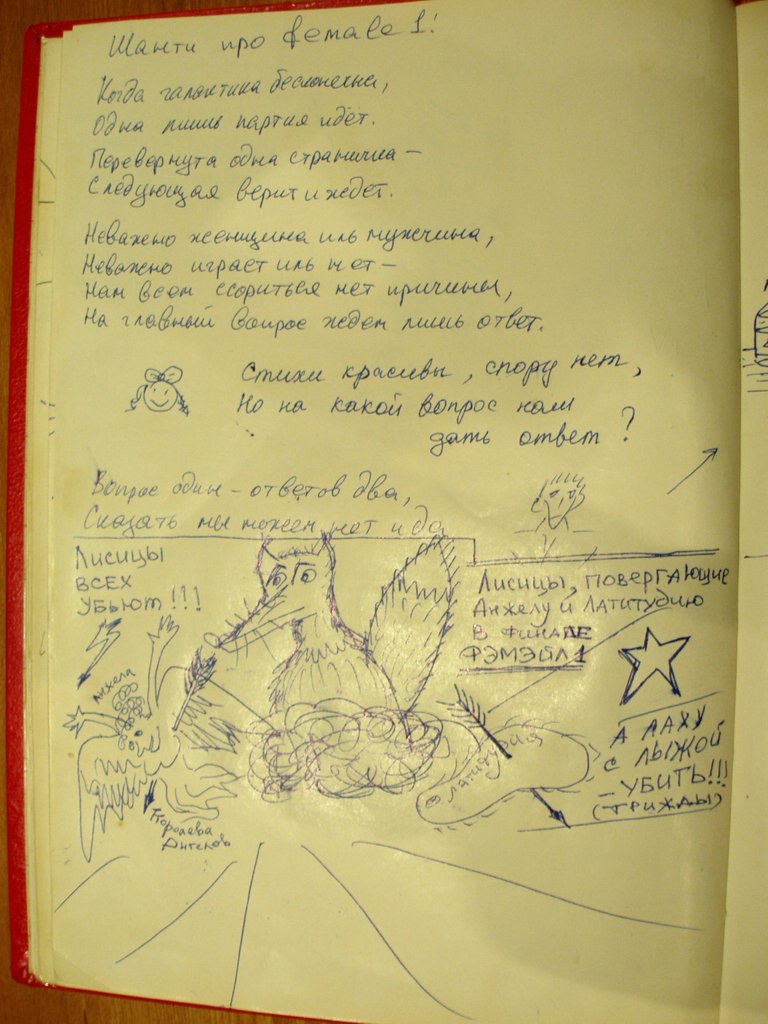 Шанти про female 1!
Когда галактика бесконечна,
Одна лишь партия идёт.
Перевернута одна страничка –
Следующая верит и ждет.
Неважно женщина иль мужчина,
Неважно играет иль нет –
Нам всем ссориться нет причины,
На главный вопрос ждем лишь ответ.
Стихи красивы, спору нет,
Но на какой вопрос нам
дать ответ?
Вопрос один – ответов два,
Сказать мы можем нет и да
Лисицы
всех
убьют!!!
Лисицы, повергающие
Анжелу и Латитудию
в финале
Фэмэйл 1
Анжела
Латитудия
А Лаху
с Лыжой
– убить!!!
(трижды)
Королева
Ангелов